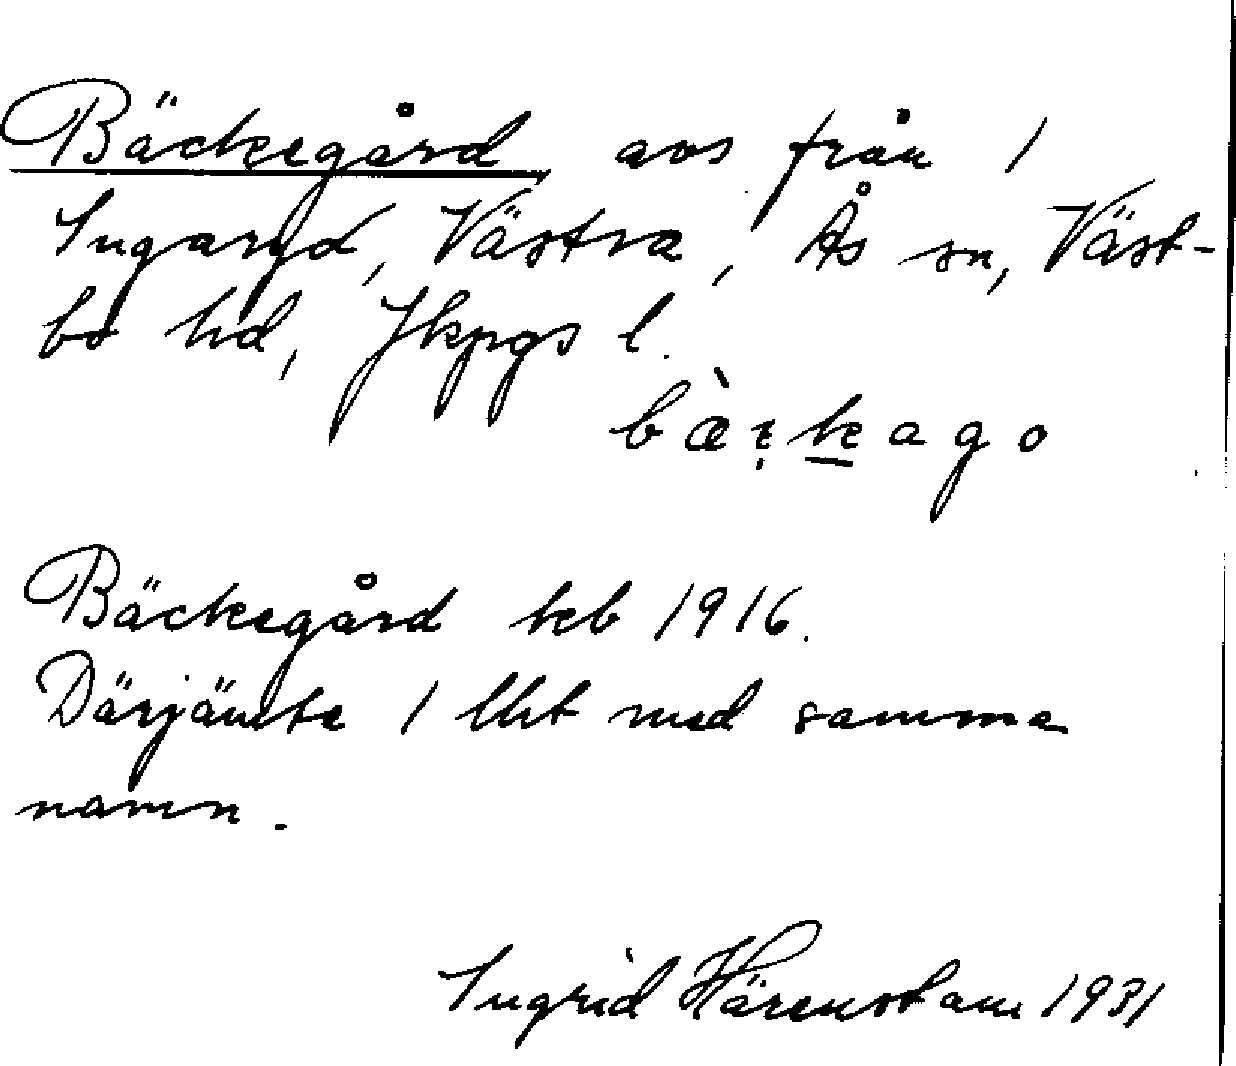 Bäckegård avs från 1
Ingaryd, Västra, Ås sn, Väst-
bo hd, Jkpgs l.
Bäckegård keb 1916.
Därjämte 1 lht med samma
namn.
Ingrid Härenstam 1931